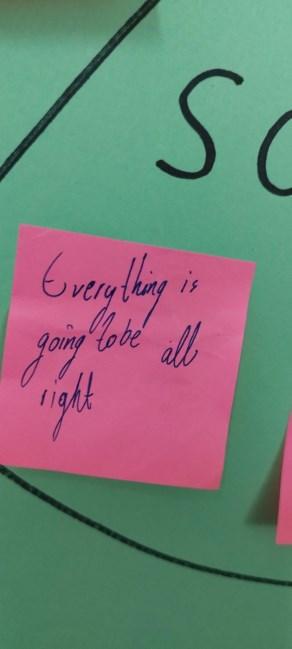 SO
Everything is
going to be all
right